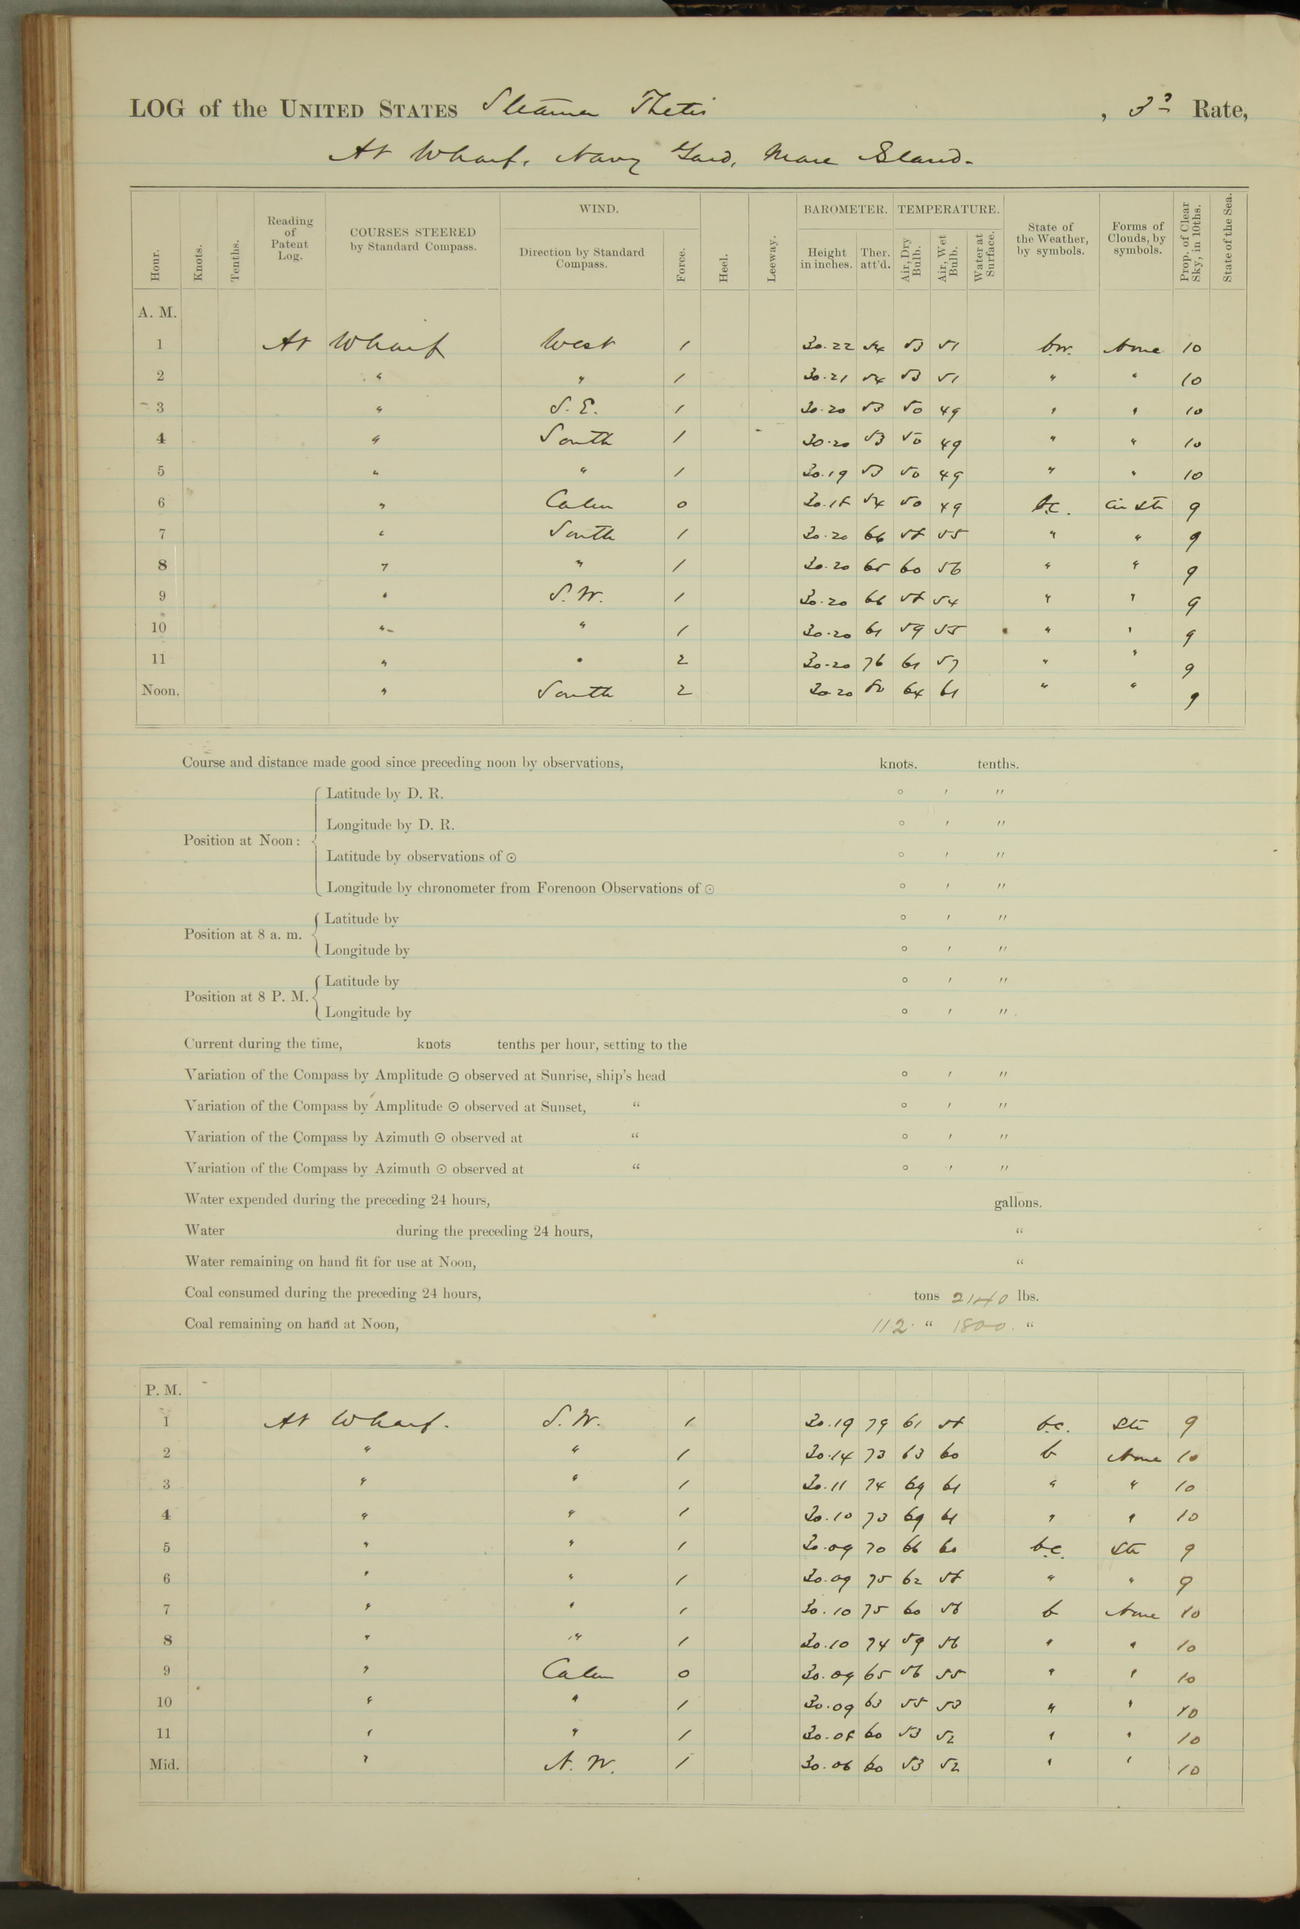 LOG of the UNITED STATES Steamer Thetis , 3d Rate,
At Wharf, Navy Yard, Mare Island.
Hour. Knots. Tenths. Reading of Patent Log. COURSES STEERED by Standard Compass. WIND. Direction by Standard Compass. Force. Heel. Leeway. BAROMETER. Height in inches. Ther. att'd. TEMPERATURE. Air, Dry Bulb. Air, Wet Bulb. Water at Surface. State of the Weather, by symbols. Forms of Clouds, by symbols. Prop. of Clear Sky, in 10ths. State of the Sea.
A. M.
1 At Wharf West 1 30.22 54 53 51 b.w. None 10
2 " " 1 30.21 54 53 51 " " 10
3 " S. E. 1 30.20 53 50 49 " " 10
4 " South 1 30.20 53 50 49 " " 10
5 " " 1 30.19 53 50 49 " " 10
6 " Calm 0 30.18 54 50 49 b.c. Cir Str 9
7 " South 1 30.20 66 58 55 " " 9
8 " " 1 30.20 65 60 56 " " 9
9 " S. W. 1 30.20 66 58 54 " " 9
10 " " 1 30.20 61 59 55 " " 9
11 " " 2 30.20 76 61 57 " " 9
Noon. " South 2 30.20 80 64 61 " " 9
Course and distance made good since preceding noon by observations, knots. tenths.
Position at Noon:
Latitude by D. R. ° ′ ″
Longitude by D. R. ° ′ ″
Latitude by observations of ⊙ ° ′ ″
Longitude by chronometer from Forenoon Observations of ⊙ ° ′ ″
Position at 8 a. m.
Latitude by ° ′ ″
Longitude by ° ′ ″
Position at 8 P. M.
Latitude by ° ′ ″
Longitude by ° ′ ″
Current during the time, knots tenths per hour, setting to the
Variation of the Compass by Amplitude ⊙ observed at Sunrise, ship's head ° ′ ″
Variation of the Compass by Amplitude ⊙ observed at Sunset, " ° ′ ″
Variation of the Compass by Azimuth ⊙ observed at " ° ′ ″
Variation of the Compass by Azimuth ⊙ observed at " ° ′ ″
Water expended during the preceding 24 hours, gallons.
Water during the preceding 24 hours, "
Water remaining on hand fit for use at Noon, "
Coal consumed during the preceding 24 hours, tons 2140 lbs.
Coal remaining on hand at Noon, 112 " 1800 "
P. M.
1 At Wharf. S. W. 1 30.19 79 61 58 b.c. Str 9
2 " " 1 30.14 73 63 60 b None 10
3 " " 1 30.11 74 69 61 " " 10
4 " " 1 30.10 73 69 61 " " 10
5 " " 1 30.09 70 66 60 b.c. Str 9
6 " " 1 30.09 75 62 58 " " 9
7 " " 1 30.10 75 60 56 b None 10
8 " " 1 30.10 74 59 56 " " 10
9 " Calm 0 30.09 65 56 55 " " 10
10 " " 1 30.09 63 55 53 " " 10
11 " " 1 30.08 60 53 52 " " 10
Mid. " N. W. 1 30.06 60 53 52 " " 10